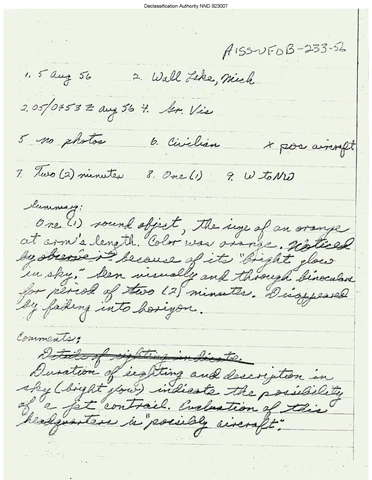 Declassification Authority NND 923007
AISS-UFOB-233-56
1. 5 Aug 56 2. Wall Lake, Mich
2. 05/0453 Z Aug 56 4. Gr. Vis
5 no photos 6. Civilian X pos aircraft
7. Two (2) minutes 8. One (1) 9. W to NW
Summary:
One (1) round object, the size of an orange
at arm's length. Color was orange. Noticed
by observer because of its "bright glow
in sky." Seen visually and through binoculars
for period of two (2) minutes. Disappeared
by fading into horizon.
Comments:
Details of sighting indicate.
Duration of sighting and description in
sky (bright glow) indicate the possibility
of a jet contrail. Evaluation of this
headquarters is "possibly aircraft"